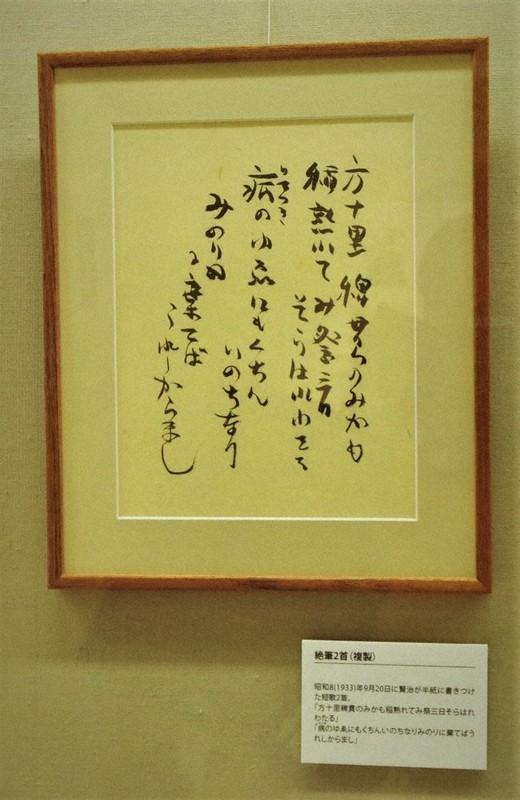 方十里稗貫のみかも
稲熟れてみ祭三日
そらはれわたる
病のゆゑにもくちん
いのちなり
みのりに
棄てば
うれしからまし
絶筆2首(複製)
昭和8(1933)年9月20日に賢治が半紙に書きつけ
た短歌2首。
「方十里稗貫のみかも稲熟れてみ祭三日そらはれ
わたる」
「病のゆゑにもくちんいのちなりみのりに棄てばう
れしからまし」